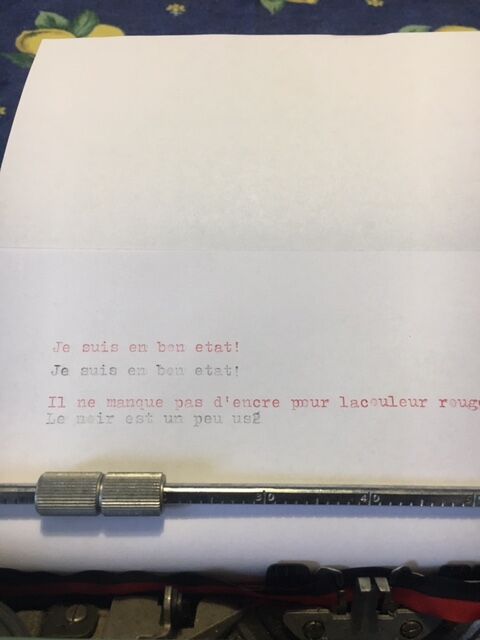 Je suis en bon etat!
Je suis en bon etat!
Il ne manque pas d'encre pour lacouleur rouge
Le noir est un peu us2
30 40